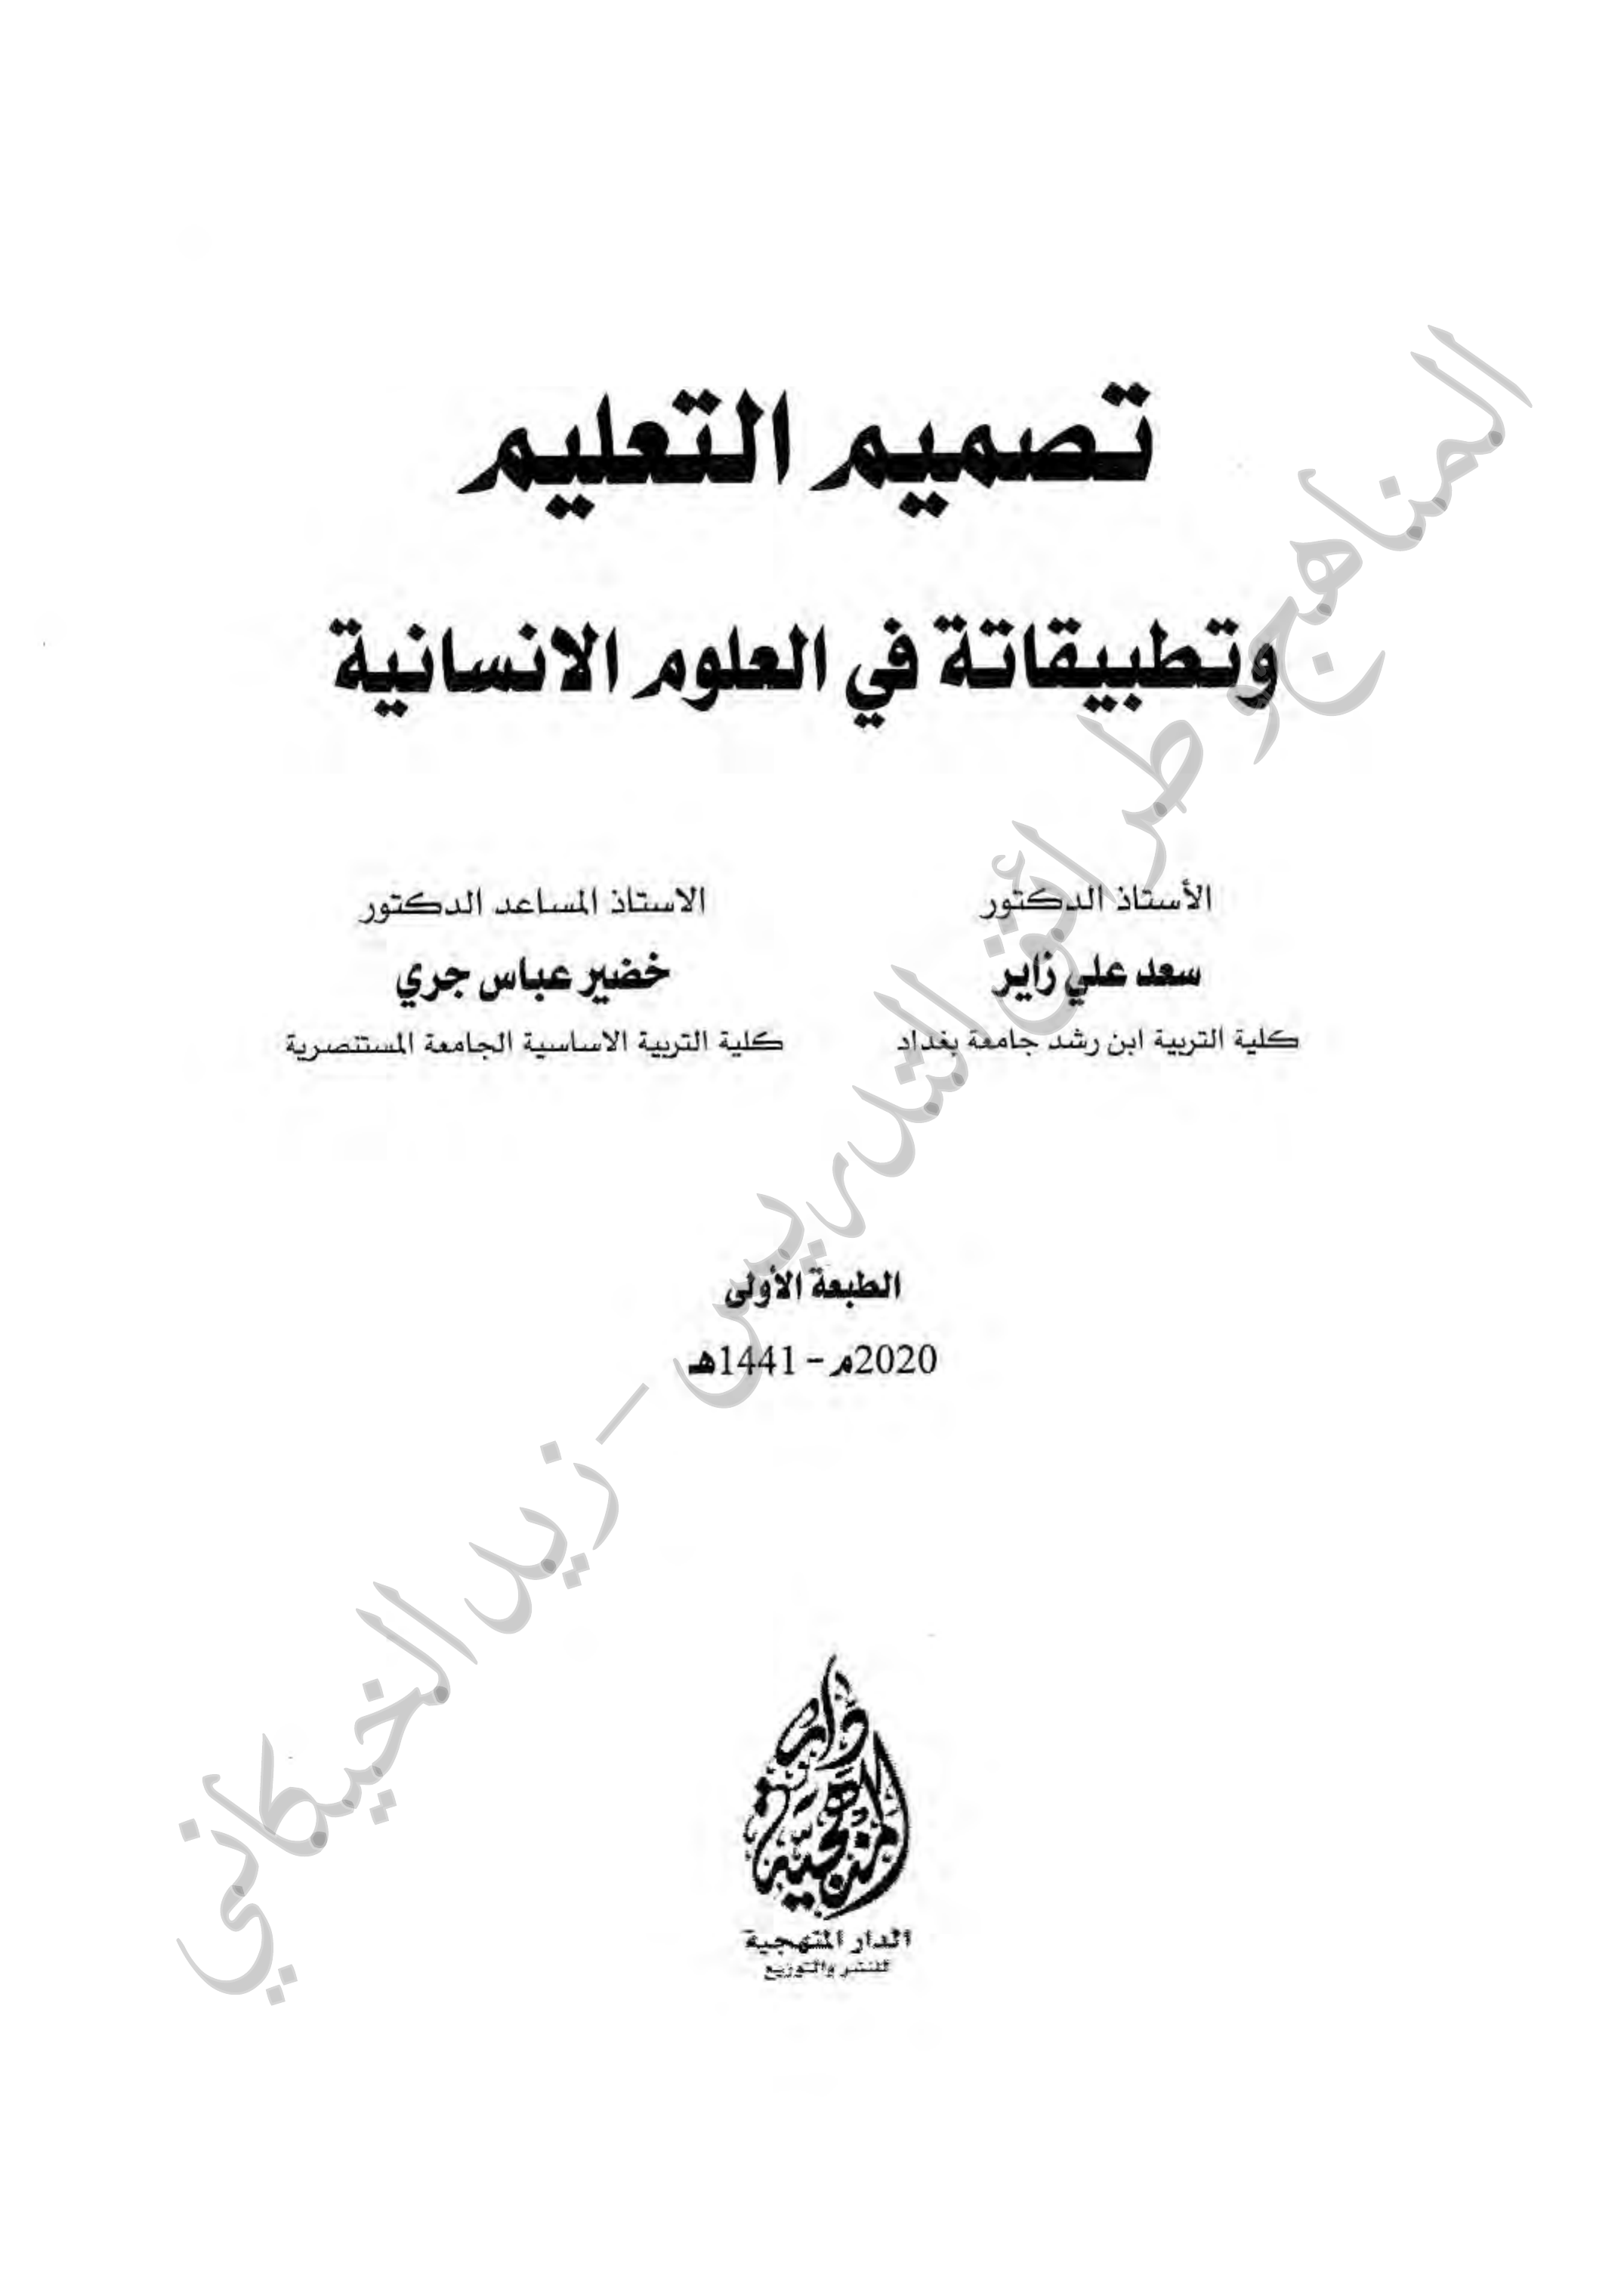 تصميم التعليم
وتطبيقاتة في العلوم الانسانية
الأستاذ الدكتور
سعد علي زاير
كلية التربية ابن رشد جامعة بغداد
الاستاذ المساعد الدكتور
خضير عباس جري
كلية التربية الاساسية الجامعة المستنصرية
الطبعة الأولى
2020م - 1441هـ
دار المنهجية
الدار المنهجية
للنشر والتوزيع
المناهج وطرائق التدريس - زيد الخيكاني